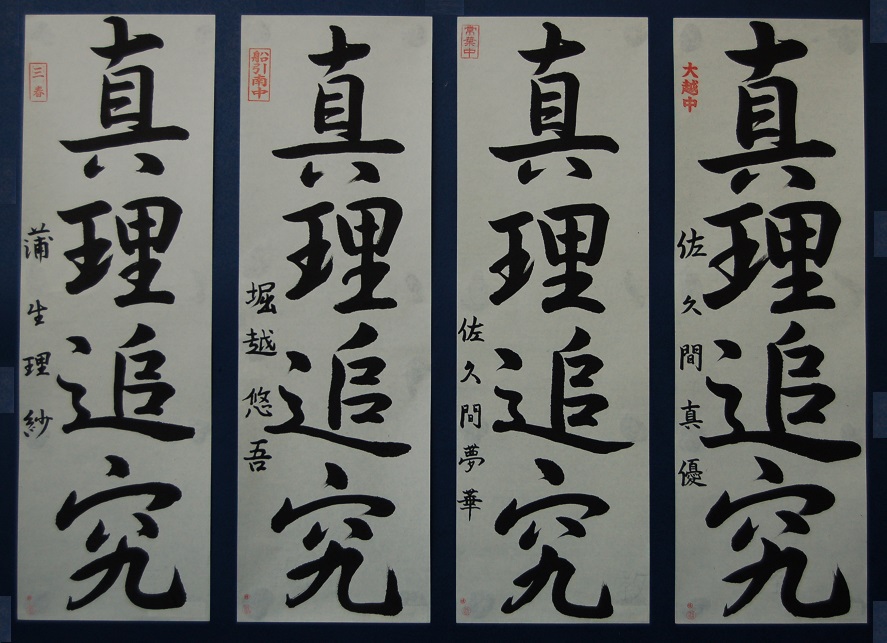 大越中
真理追究
佐久間真優
常葉中
真理追究
佐久間夢華
船引南中
真理追究
堀越悠吾
三春
真理追究
蒲生理紗